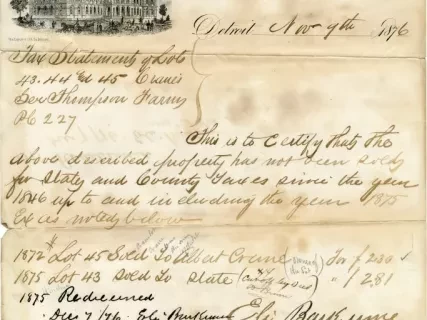 Detroit Nov 9th 1876
Tax Statements of Lots
43.44 & 45 Crane's
Sec Thompson Farm
PC 227
This is to Certify that the
above described property has not been sold
for State and County Taxes since the year
1846 up to and including the year 1875
Except as noted below
1872 Lot 45 Sold To Albert Crane for $2.30
1875 Lot 43 Sold To State " 1 281
1875 Redeemed
Dec 7/76 Eli Barkume Eli Barkume